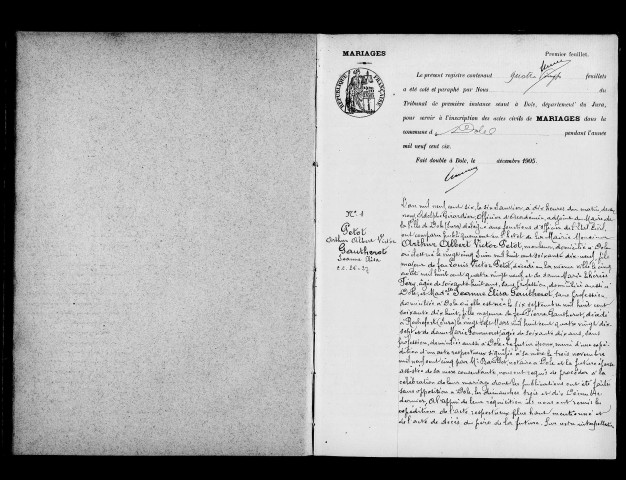 MARIAGES
Premier feuillet.
RÉPUBLIQUE FRANÇAISE
Le présent registre contenant quatre vingt feuillets
a été coté et paraphé par Nous du
Tribunal de première instance séant à Dole, département du Jura,
pour servir à l'inscription des actes civils de MARIAGES dans la
commune d Dole pendant l'année
mil neuf cent six.
Fait double à Dole, le décembre 1905.
N° 1
Petot
Arthur Albert Victor
Gautherot
Jeanne Elisa
L'an mil neuf cent six, le six Janvier, à dix heures du matin devant
nous Adolphe Girardier, Officier d'Académie, adjoint au Maire de
la Ville de Dole (Jura) délégué aux fonctions d'Officier de l'Etat Civil,
ont comparu publiquement en l'Hôtel de la Mairie Monsieur
Arthur Albert Victor Petot, domicilié à Dole
où il est né le vingt cinq Juin mil huit cent soixante dix neuf, fils
majeur de feu Louis Victor Petot, décédé en la même ville le cinq
août mil huit cent quatre vingt neuf, et de dame Marie Thérèse
âgée de soixante huit ans, sans profession, domiciliée aussi à
Dole, et Mad.lle Jeanne Elisa Gautherot, sans profession,
domiciliée à Dole où elle est née le six septembre mil huit cent
soixante dix huit, fille majeure de feu Pierre Gautherot, décédé
à Rochefort (Jura) le vingt sept Mars mil huit cent quatre vingt dix
sept et de dame Marie âgée de soixante dix ans, sans
profession, domiciliée aussi à Dole. Le futur époux, muni d'une expé-
dition d'un acte respectueux signifié à sa mère le trois novembre
mil neuf cent cinq par Me notaire à Dole et la future épouse
assistée de sa mère consentante, nous ont requis de procéder à la
célébration de leur mariage dont les publications ont été faites
sans opposition à Dole, les dimanches trois et dix Décembre
dernier, à l'appui de leur réquisition ils nous ont remis les
expéditions de l'acte respectueux plus haut mentionné et
de l'acte de décès du père de la future. Sur notre interpellation